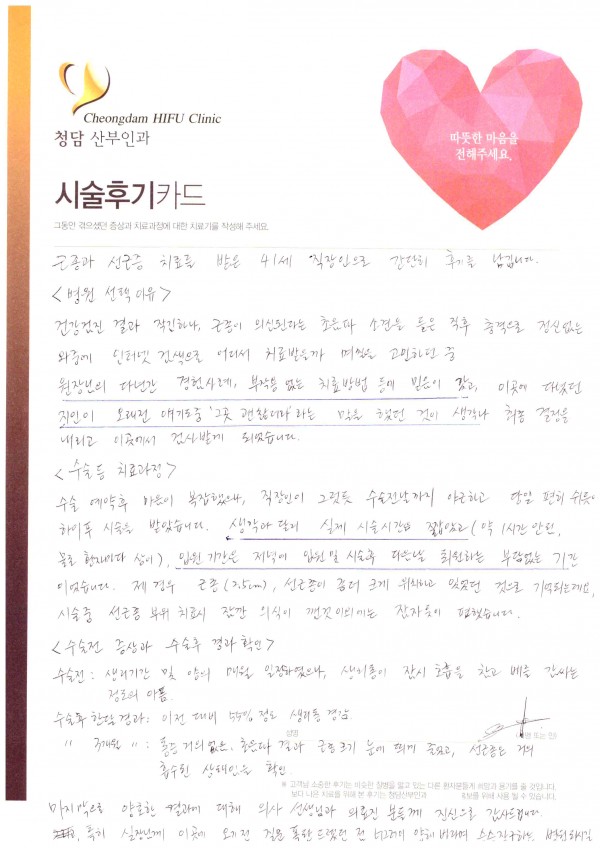 Cheongdam HIFU Clinic
청담 산부인과
따뜻한 마음을
전해주세요.
시술후기카드
그동안 겪으셨던 증상과 치료과정에 대한 치료기를 작성해 주세요.
근종과 선근증 치료를 받은 41세 직장인으로 간단히 후기를 남깁니다.
<병원 선택 이유>
건강검진 결과 작진하나, 근종이 의심된다는 초음파 소견을 들은 직후 충격으로 정신없는
와중에 인터넷 검색으로 어디서 치료받을까 며칠을 고민하던 중
원장님의 다년간 경험사례, 부작용 없는 치료방법 등에 믿음이 갔고, 이곳에 다녔던
지인이 오래전 얘기도중 '그곳 괜찮더라' 라는 말을 했던 것이 생각나 최종 결정을
내리고 이곳에서 검사받게 되었습니다.
<수술등 치료과정>
수술 예약후 마음이 복잡했으나, 직장인이 그렇듯 수술전날까지 야근하고 당일 편히 쉬듯이
하이푸 시술을 받았습니다. 생각과 달리 실제 시술시간은 짧았고 (약 1시간 안팎,
물론 환자마다 상이), 입원기간은 저녁에 입원 및 시술후 다음날 퇴원하는 부담없는 기간
이었습니다. 제 경우 근종 (2.5cm), 선근증이 좀더 크게 위치하고 있었던 것으로 기억되는데요,
시술중 선근증 부위 치료시 잠깐 의식이 깬것 이외에는 잔자욱이 편했습니다.
<수술전 증상과 수술후 결과확인>
수술전 : 생리기간 및 양의 매월 일정하였으나, 생리통이 잠시 호흡을 참고 배를 감싸는
정도의 아픔.
수술후 한달 결과 : 이전 대비 55% 정도 생리통 경감.
성명
(서명 또는 인)
" 3개월 " : 통증 거의 없음. 초음파 결과 근종크기 눈에 띄게 줄었고, 선근증은 거의
흡수된 상태임을 확인.
※ 고객님 소중한 후기는 비슷한 질병을 앓고 있는 다른 환자분들께 희망과 용기를 줄 것입니다.
보다 나은 치료를 위해 본 후기는 청담산부인과 홍보를 위해 사용 될 수 있습니다.
마지막으로 양호한 결과에 대해 의사 선생님과 의료진 분들께 진심으로 감사드립니다.
특히 실장님께 이곳에 오기전 질문 폭탄 드렸던 점 너그러이 양해 바라며